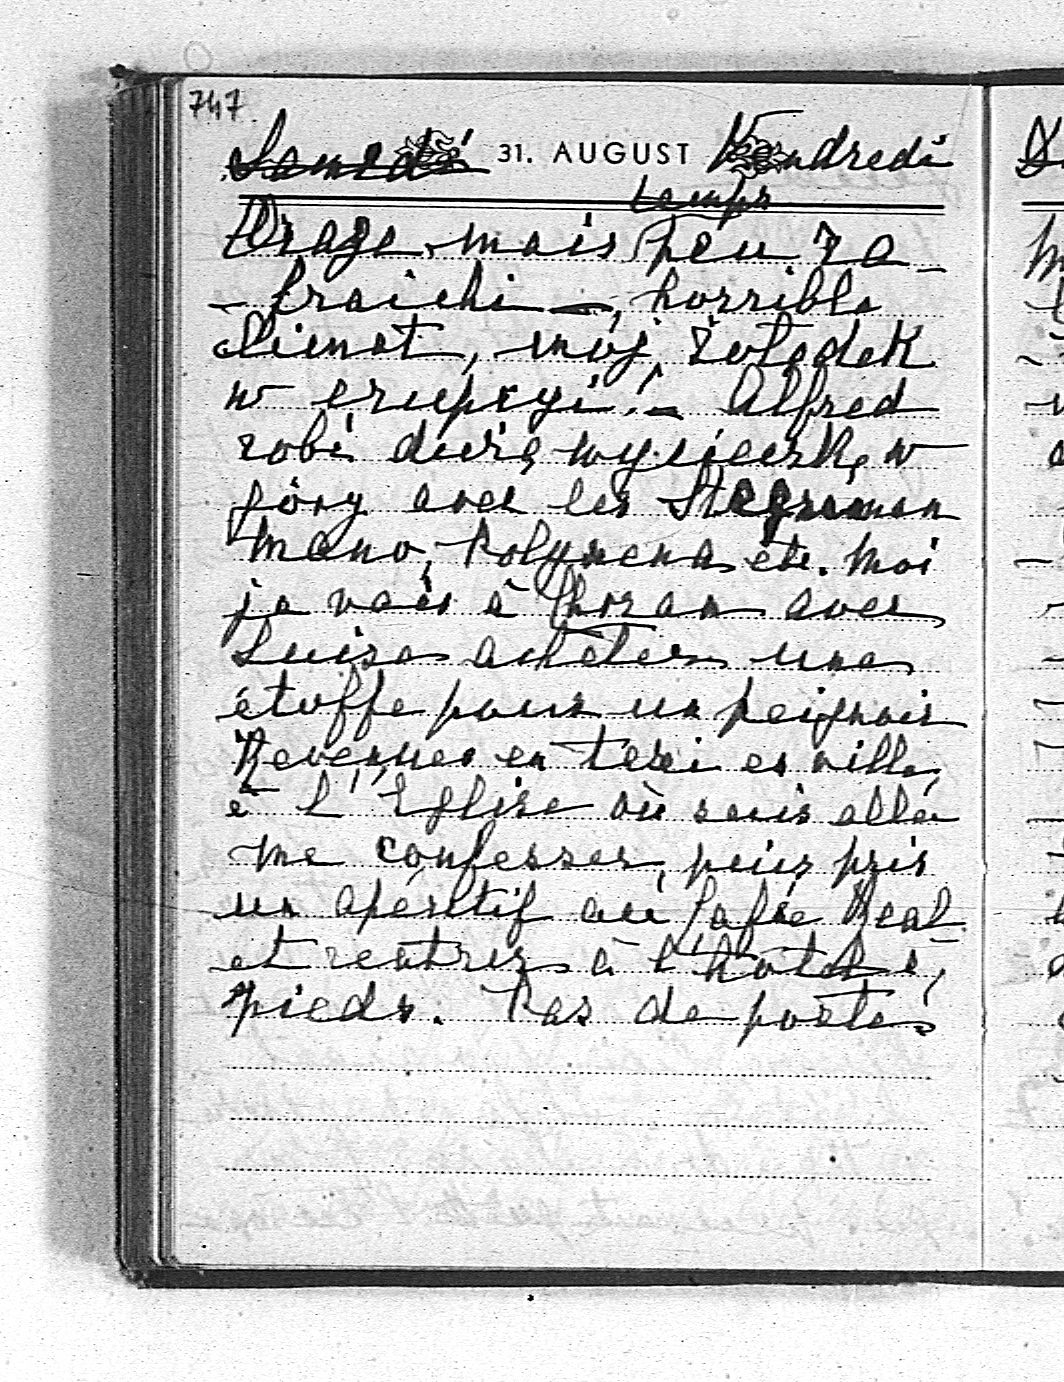 747.
Samedi 31. AUGUST Vendredi
temps
Orage, mais peu ra-
- fraichi —, horrible
climat, mój żołądek
w erupcyi! - Alfred
robi dużą wycieczkę w
góry avec les
Mano, etc. Moi
je vais à avec
Luisa acheter une
étoffe pour un peignoir
Revenues en taxi en ville,
à L'Eglise où suis allée
me confesser, puis pris
un apéritif au Cafée Real
et rentrés à l'hotel à
pieds. Pas de poste.